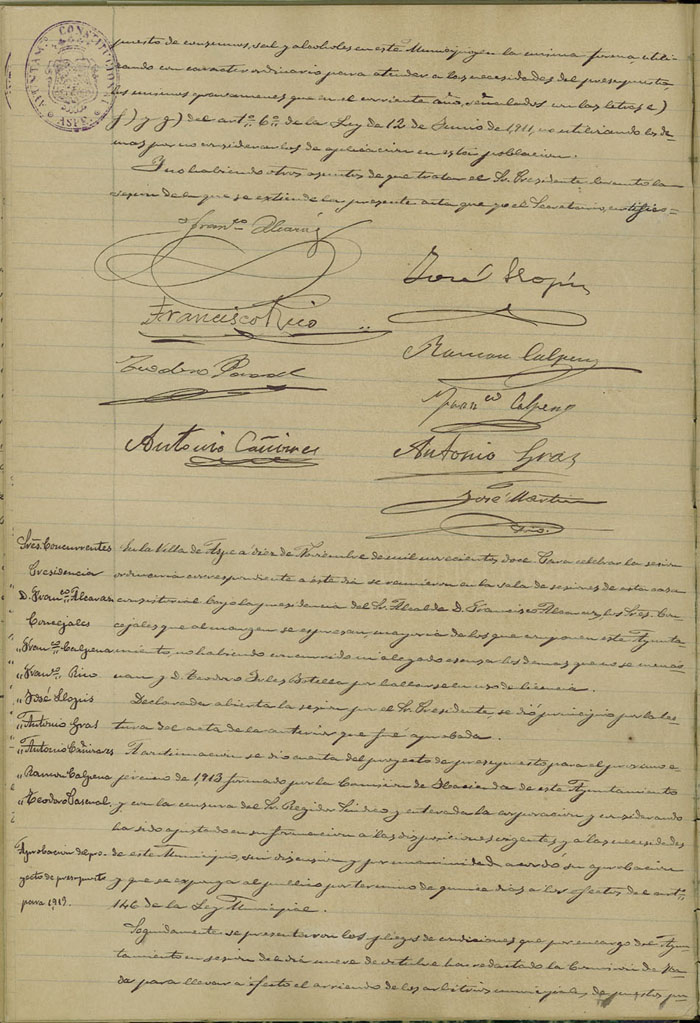 AYUNTAM.TO CONSTITUCIONAL ASPE
puesto de consumos, sal y alcoholes en este Municipio, en la misma forma utili-
zando con caracter ordinario para atender a las necesidades del presupuesto,
los mismos gravamenes que en el corriente año, señalados en las letras e)
f) y g) del artº 6º de la Ley de 12 de Junio de 1911, no utilizando los de-
mas por no considerarlos de aplicacion en esta poblacion.
Y no habiendo otros asuntos de que tratar el Sr. Presidente levantó la
sesion de la que se extiende la presente acta que yo el Secretario, certifico=
Franco Alcaráz
José Llopis
Francisco Rico
Ramon Calpena
Teodoro Pascual
Franco Calpena
Antonio Cañizares
Antonio Gras
José Martin
Srio.
Sres. Concurrentes
Presidencia
D. Franco Alcaraz
Concejales
" Franco Calpena
" Franco Rico
" José Llopis
" Antonio Gras
" Antonio Cañizares
" Ramon Calpena
" Teodoro Pascual
Aprobacion del pro-
yecto de presupuesto
para 1913.
En la Villa de Aspe a diez de Noviembre de mil novecientos doce. Para celebrar la sesion
ordinaria correspondiente a este dia se reunieron en la sala de sesiones de esta casa
consistorial bajo la presidencia del Sr. Alcalde D. Francisco Alcaraz, los Sres. Con-
cejales que al margen se expresan mayoria de los que componen este Ayunta-
miento, no habiendo concurrido ni alegado escusa los demas que no se mencio-
nan y D. Teodoro Botella por hallarse en uso de licencia.
Declarada abierta la sesion por el Sr. Presidente, se dió principio por la lec-
tura del acta de la anterior que fué aprobada.
A continuacion se dio cuenta del proyecto de presupuesto para el proximo e-
jercicio de 1913 formado por la Comision de Hacienda de este Ayuntamiento
y con la censura del Sr. Regidor Sindico y enterada la corporacion y considerando
ha sido ajustado en su formacion a las disposiciones vigentes y a las necesidades
de este Municipio, sin discusion y por unanimidad acordó su aprobacion
y que se exponga al publico por termino de quince dias a los efectos del artº
146 de la Ley Municipal.
Seguidamente se presentaron los pliegos de condiciones que por encargo del Ayun-
tamiento en sesion de diez y nueve de octubre ha redactado la Comision de
para llevar a efecto el arriendo de los arbitrios municipales de puestos pu-